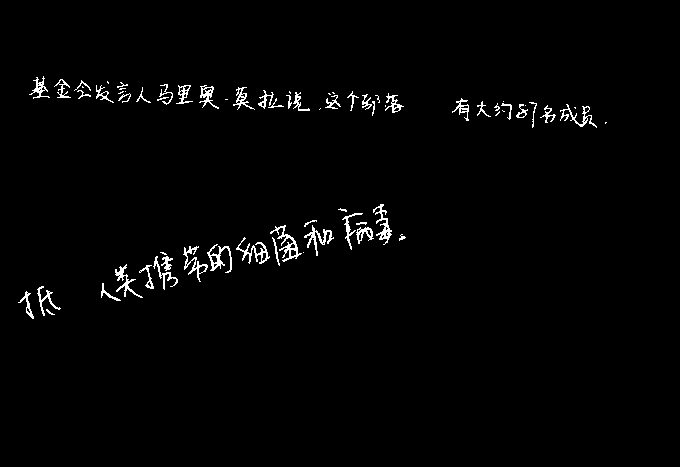 基金会发言人马里奥·莫拉说,这个部落 有大约87名成员.
抵 人类携带的细菌和病毒。